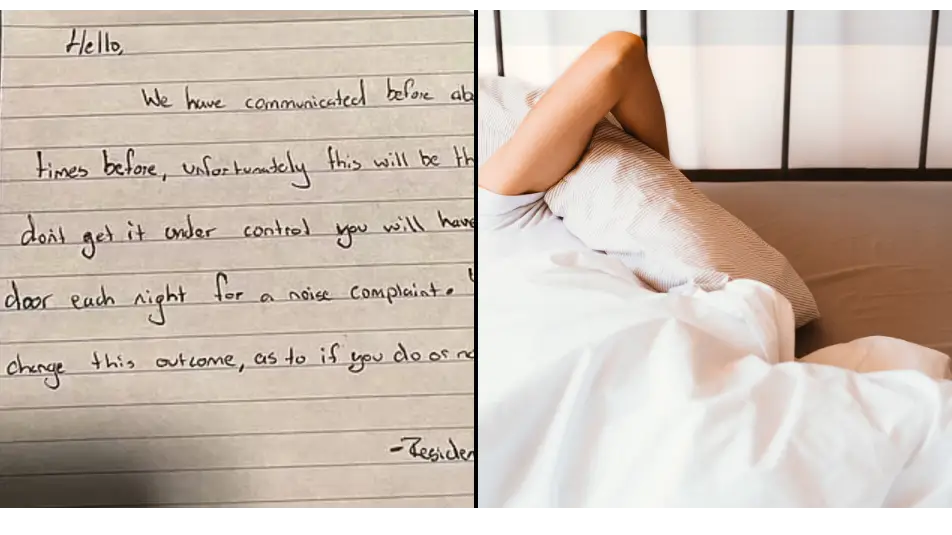 Hello,
We have communicated before ab
times before, unfortunately this will be th
don't get it under control you will have
door each night for a noise complaint.
change this outcome, as to if you do or no
-Residen